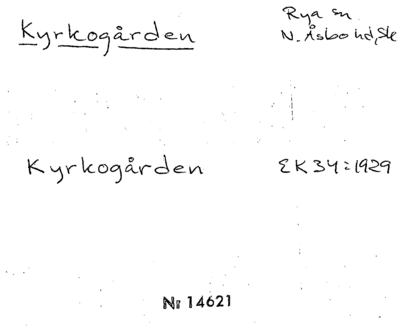 Kyrkogården
Rya sn
N. Åsbo hd, Sk
Kyrkogården
EK 34:1929
Nr 14621